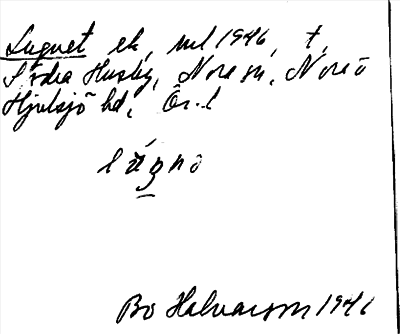 Lugnet ek, nul 1946, t.
Södra Husby, Nora sn, Nora o
Hjulsjö hd, Ör. l
lúgnö
Bo Halvarson 1946